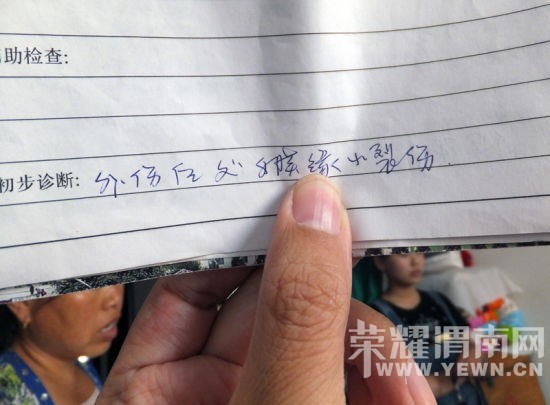 助检查:
初步诊断: 外伤后处女膜缘小裂伤.
荣耀渭南网
WWW.YEWN.CN